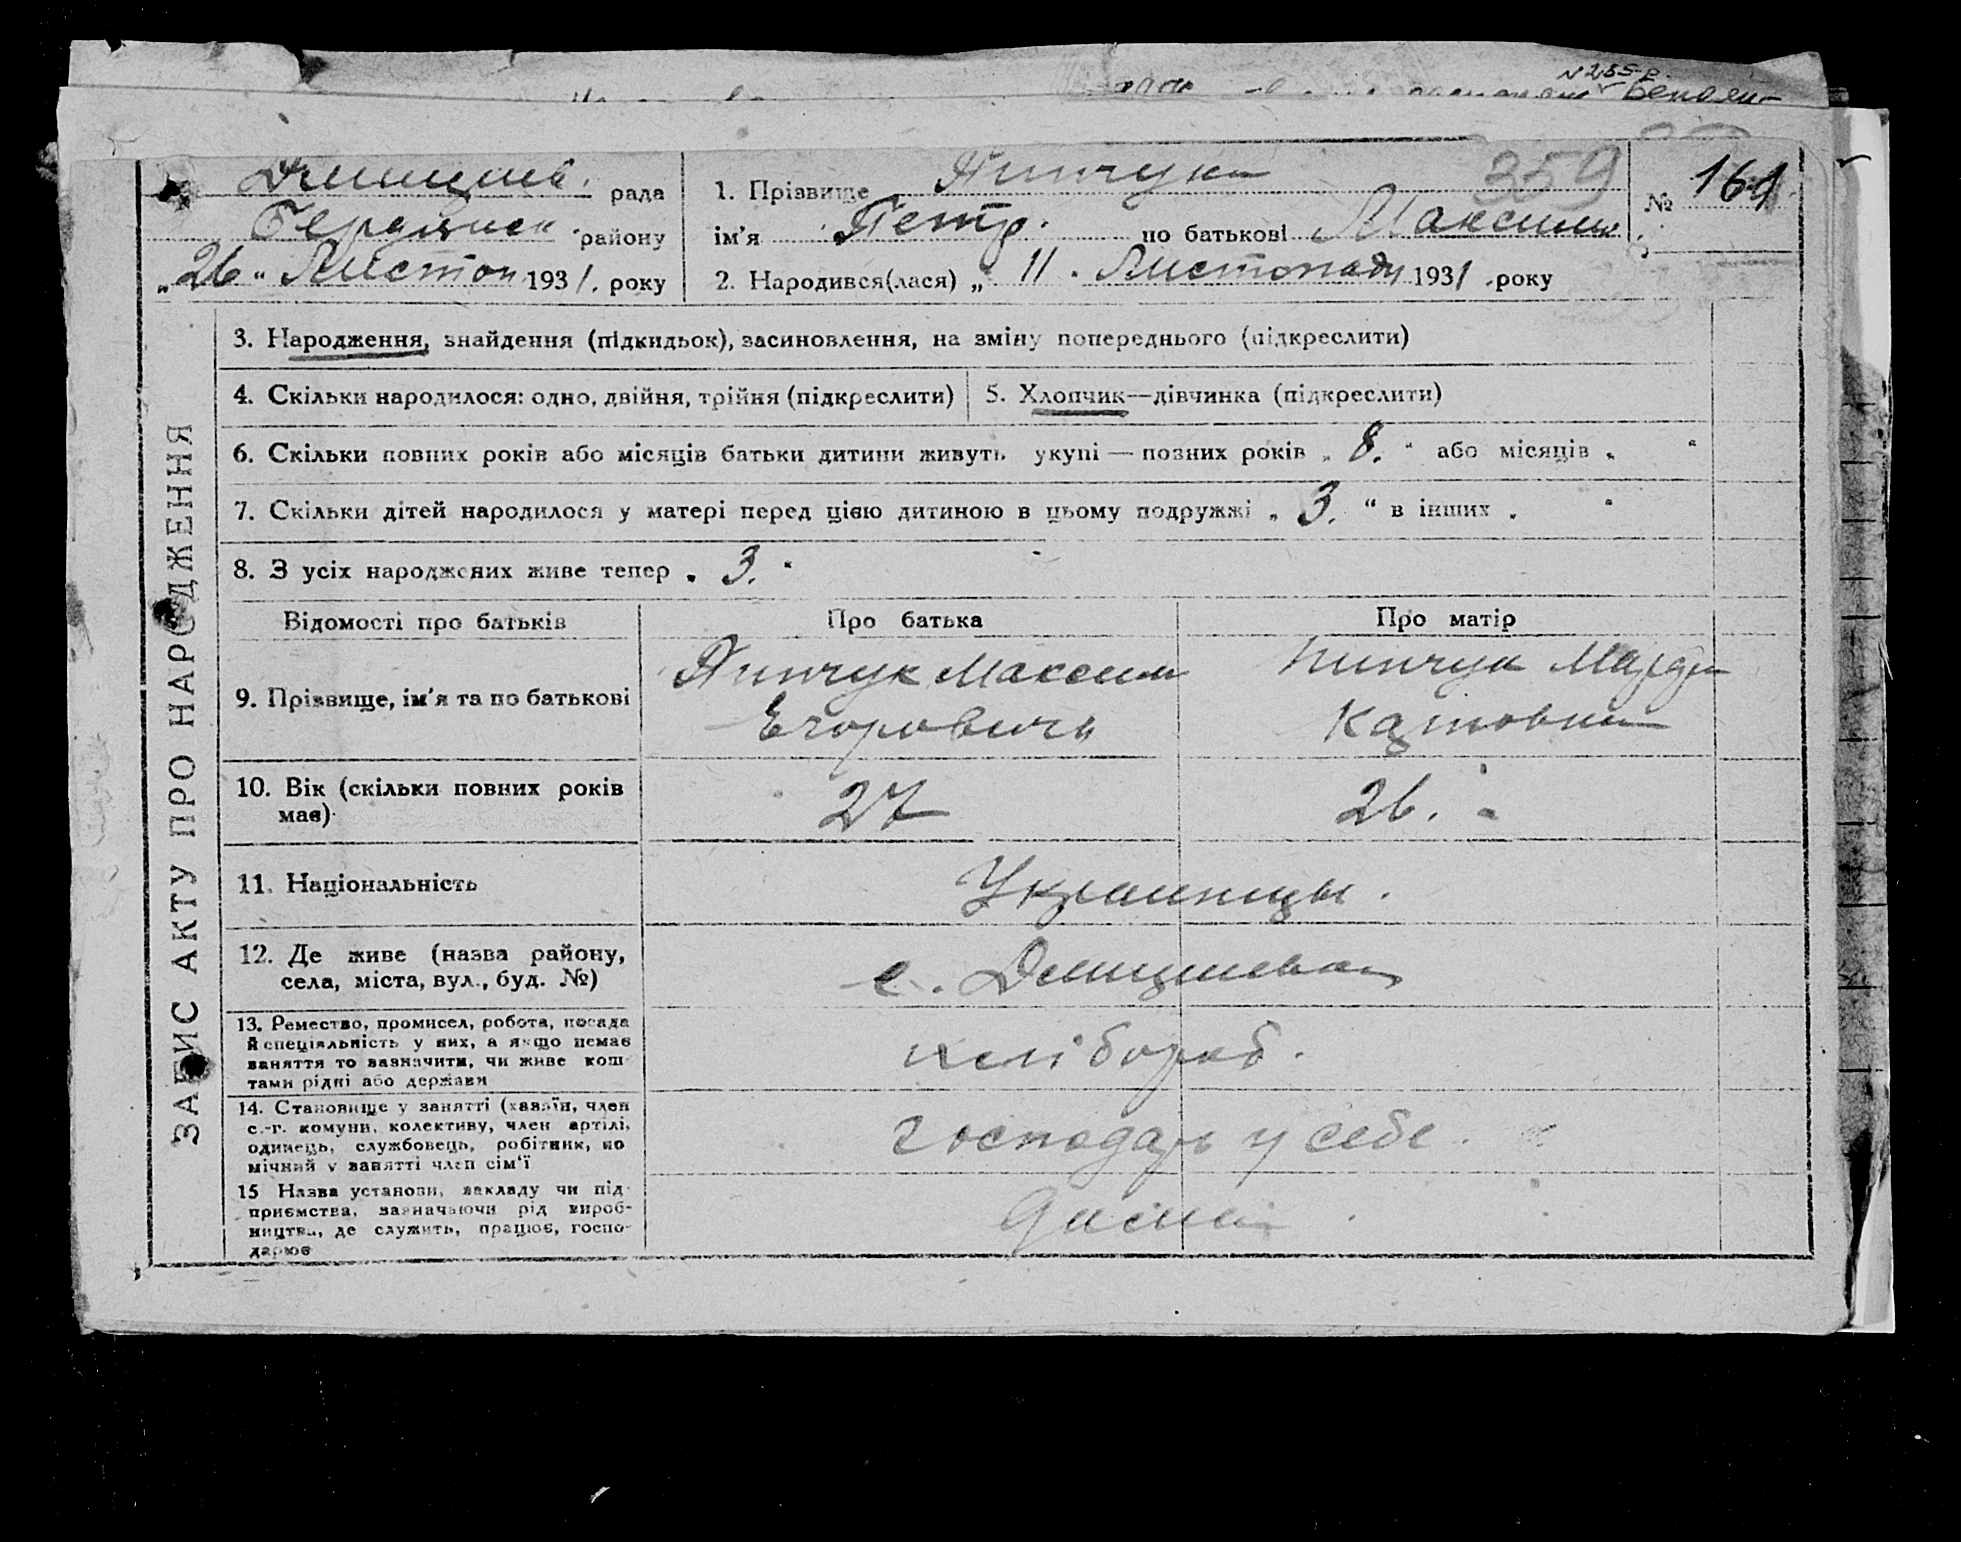 рада
1. Прізвище Пинчук
359
№ 161
району
ім'я Петр. по батькові Максим
„26" Листоп 1931. року
2. Народився(лася) „ 11. Листопаду 1931 року
ЗАПИС АКТУ ПРО НАРОДЖЕННЯ
3. Народження, знайдення (підкидьок), засиновлення, на зміну попереднього (підкреслити)
4. Скільки народилося: одно, двійня, трійня (підкреслити)
5. Хлопчик—дівчинка (підкреслити)
6. Скільки повних років або місяців батьки дитини живуть укупі — повних років „ 8. " або місяців „ "
7. Скільки дітей народилося у матері перед цією дитиною в цьому подружжі „ 3. " в інших „ "
8. З усіх народжених живе тепер „ 3. "
Відомості про батьків
Про батька
Про матір
9. Прізвище, ім'я та по батькові
Пинчук Максим
Егорович
Пинчук
10. Вік (скільки повних років
має)
27
26.
11. Національність
Украинцы.
12. Де живе (назва району,
села, міста, вул., буд. №)
с.
13. Ремество, промисел, робота, посада
й спеціяльність у них, а якщо немає
заняття то зазначити, чи живе кош-
тами рідні або держави
хлібороб.
14. Становище у занятті (хазяїн, член
с.-г. комуни, колективу, член артілі,
одинець, службовець, робітник, по
мічний у занятті член сім'ї
Господарь у себе.
15 Назва установи, закладу чи під-
приємства, зазначаючи рід вироб-
ництва, де служить, працює, госпо-
дарює